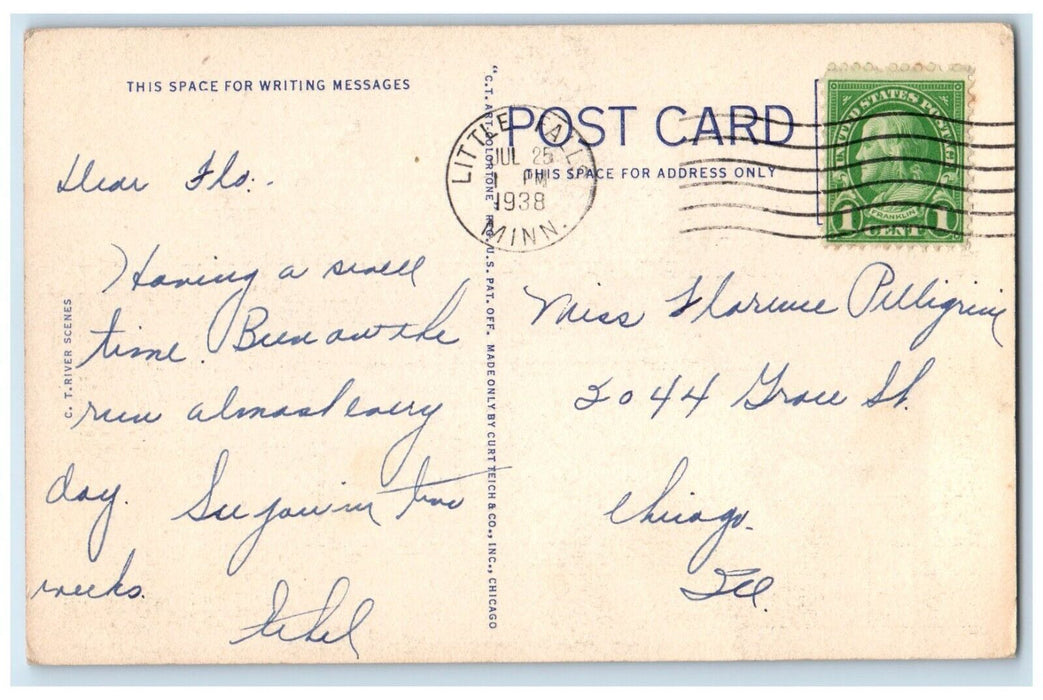 THIS SPACE FOR WRITING MESSAGES
Dear Flo:-
Having a swell
time. Been on the
run almost every
day. See you in two
weeks.
Ethel
C. T. RIVER SCENES
"C.T. ART-COLORTONE" REG. U.S. PAT. OFF. MADE ONLY BY CURT TEICH & CO., INC., CHICAGO
POST CARD
THIS SPACE FOR ADDRESS ONLY
LITTLE FALLS
JUL 25
1 PM
1938
MINN.
UNITED STATES POSTAGE
FRANKLIN
1 CENT 1
Miss Florence Pelligrini
2044 Grace St.
Chicago.
Ill.